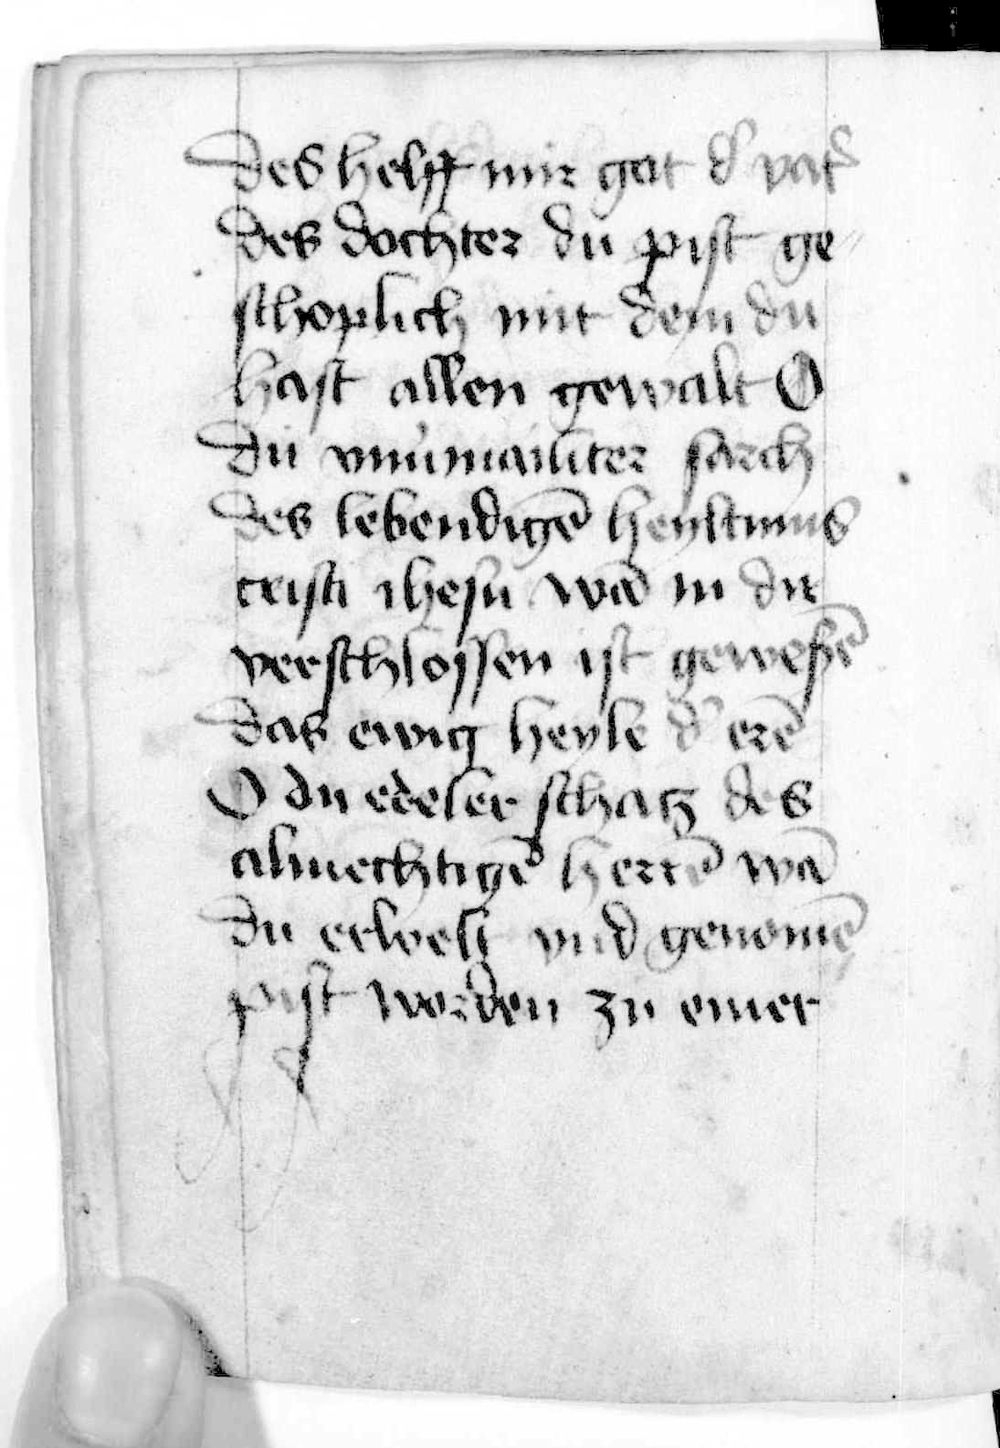 Des helff mir got d' vat'
des dochter du pist ge⸗
schoplich mit dem du
hast allen gewalt O
du vnuermailiter sarch
des lebendigē heyltums
cristi ihesu wā in dir
verschlossen ist gewesē
das ewig heyle d' erē
O du edeler schatz des
almechtigē herrē wā
du erwelt vnd genomē
pist worden zu einer